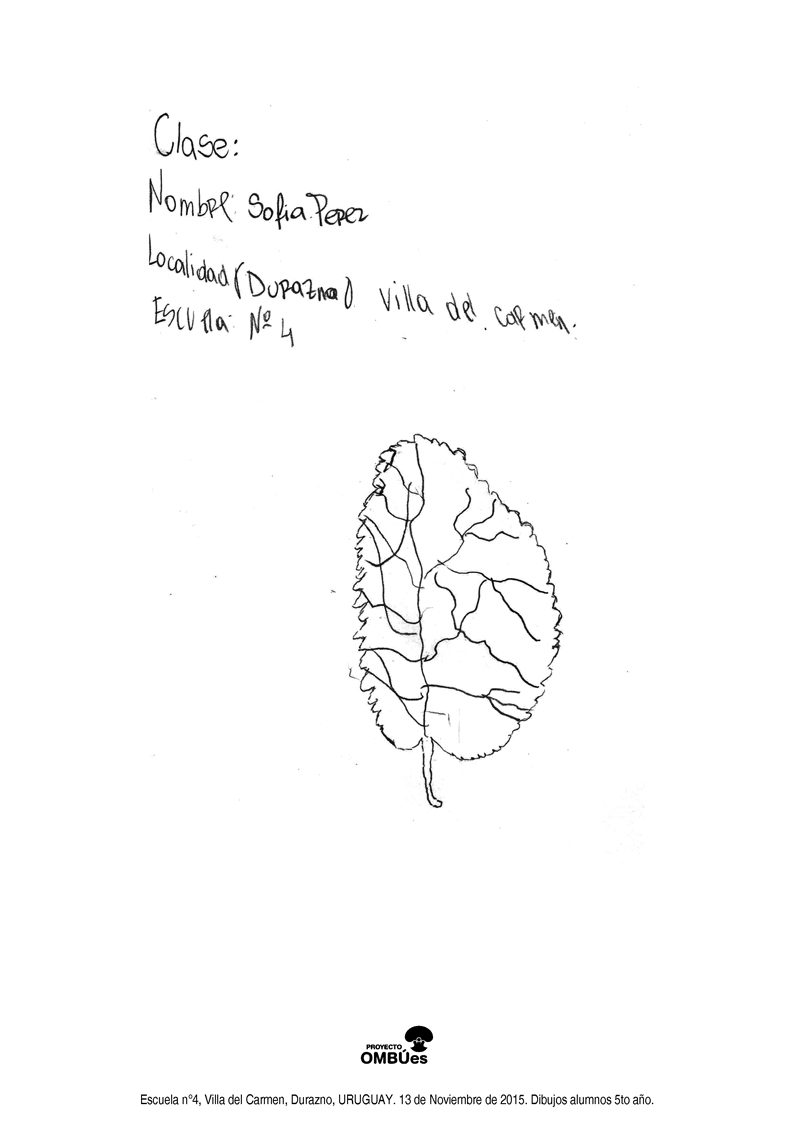 Clase:
Nombre: Sofia Perez
Localidad (Durazno) Villa del Carmen.
Escuela: Nº 4
PROYECTO
OMBÚes
Escuela n°4, Villa del Carmen, Durazno, URUGUAY. 13 de Noviembre de 2015. Dibujos alumnos 5to año.